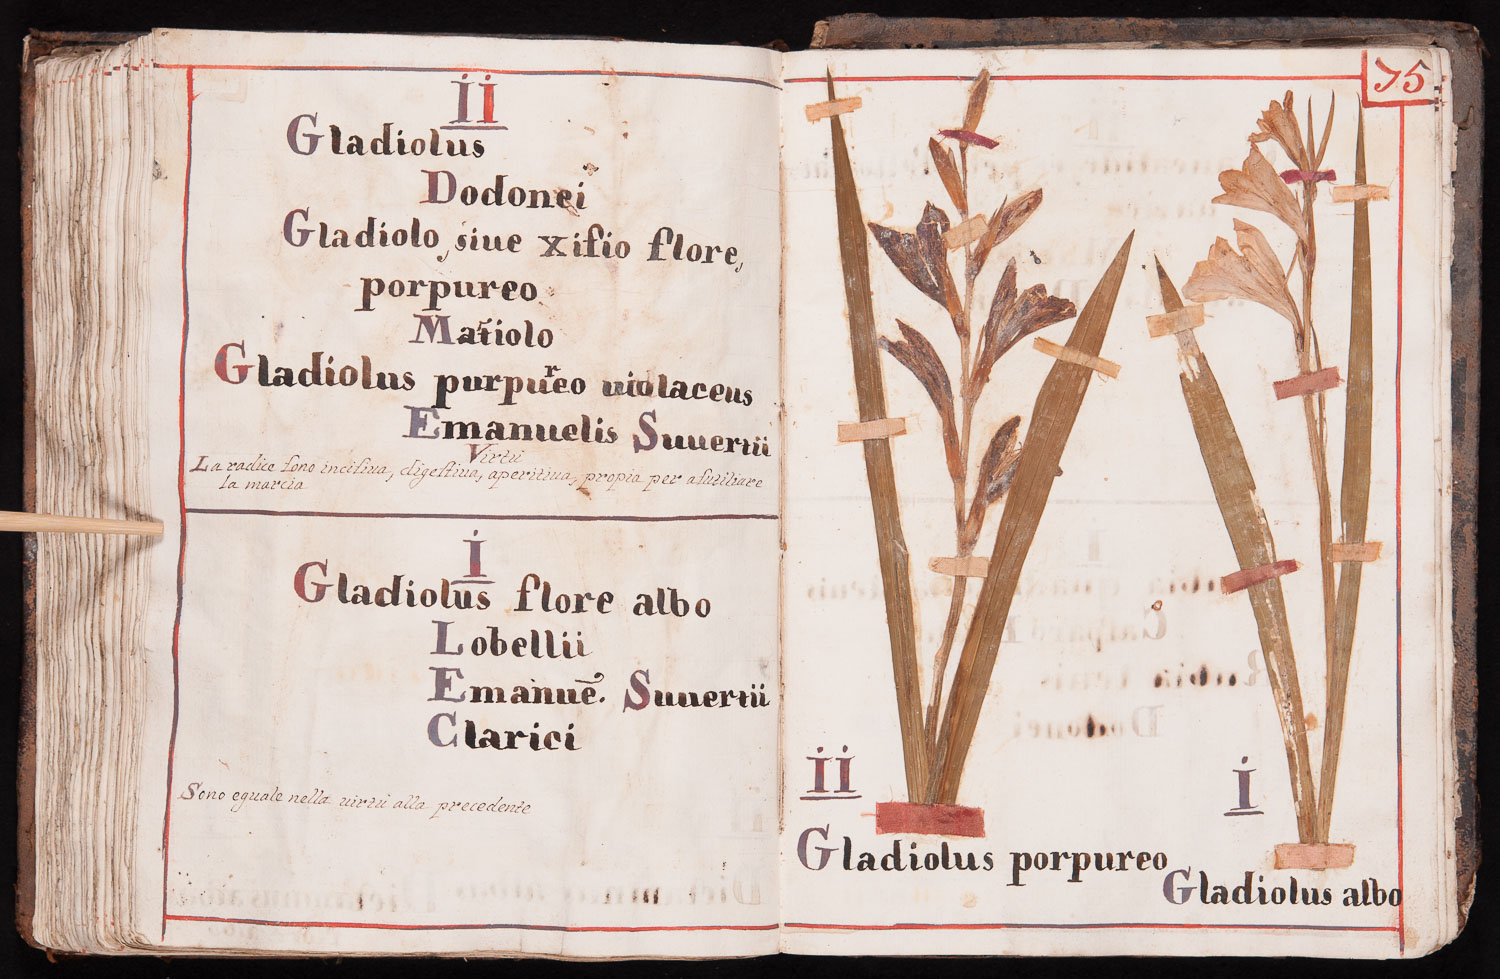 ii
Gladiolus
Dodonei
Gladiolo, siue xifio flore,
porpureo
Matiolo
Gladiolus purpureo uiolaceus
Emanuelis Suuertii
Virtù
La radice sono incisiua, digestiua, aperitiua, propia per asutiliare
la marcia
i
Gladiolus flore albo
Lobellii
Emanuē. Suuertii
Clarici
Sono eguale nella uirtù alla precedente
75
ii
Gladiolus porpureo
i
Gladiolus albo